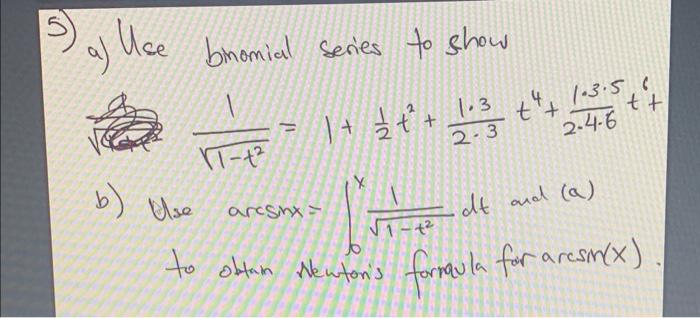 5) a) Use binomial series to show
1/√(1-t²) = 1 + 1/2 t² + 1·3/2·3 t⁴ + 1·3·5/2·4·6 t⁶ +
b) Use arcsinx = ∫₀ˣ 1/√(1-t²) dt and (a)
to obtain Newton's formula for arcsin(x).